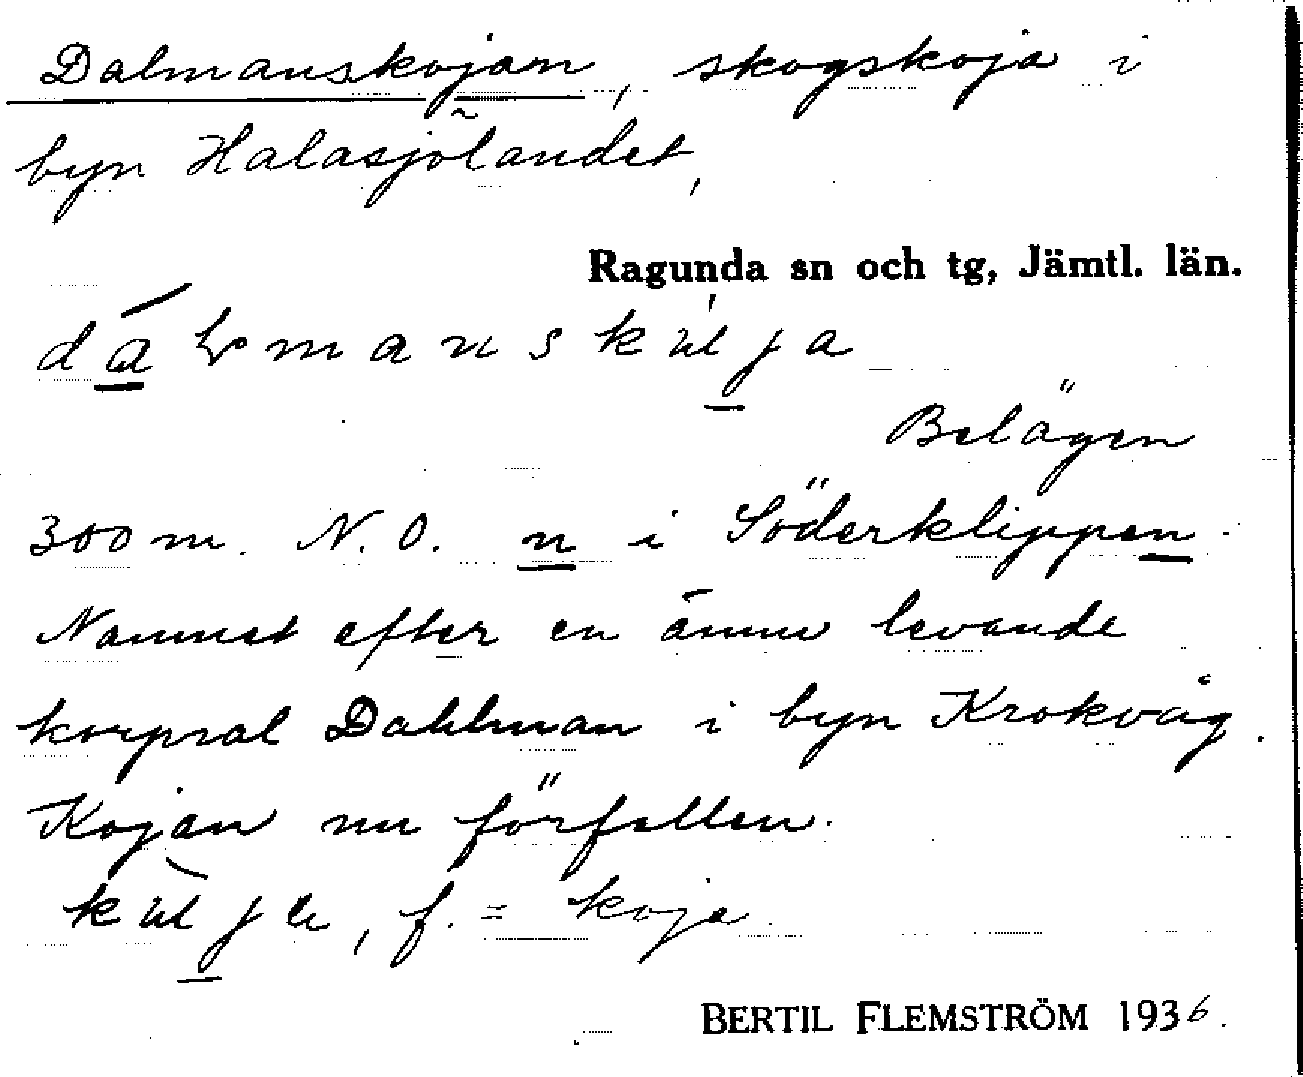 Dalmanskojan, skogskoja i
byn Halasjölandet,
Ragunda sn och tg, Jämtl. län.
Belägen
300 m. N.O. n i Söderklippen.
Namnet efter en ännu levande
korpral Dahlman i byn Krokvåg.
Kojan nu förfallen.
f. = koja.
BERTIL FLEMSTRÖM 1936.